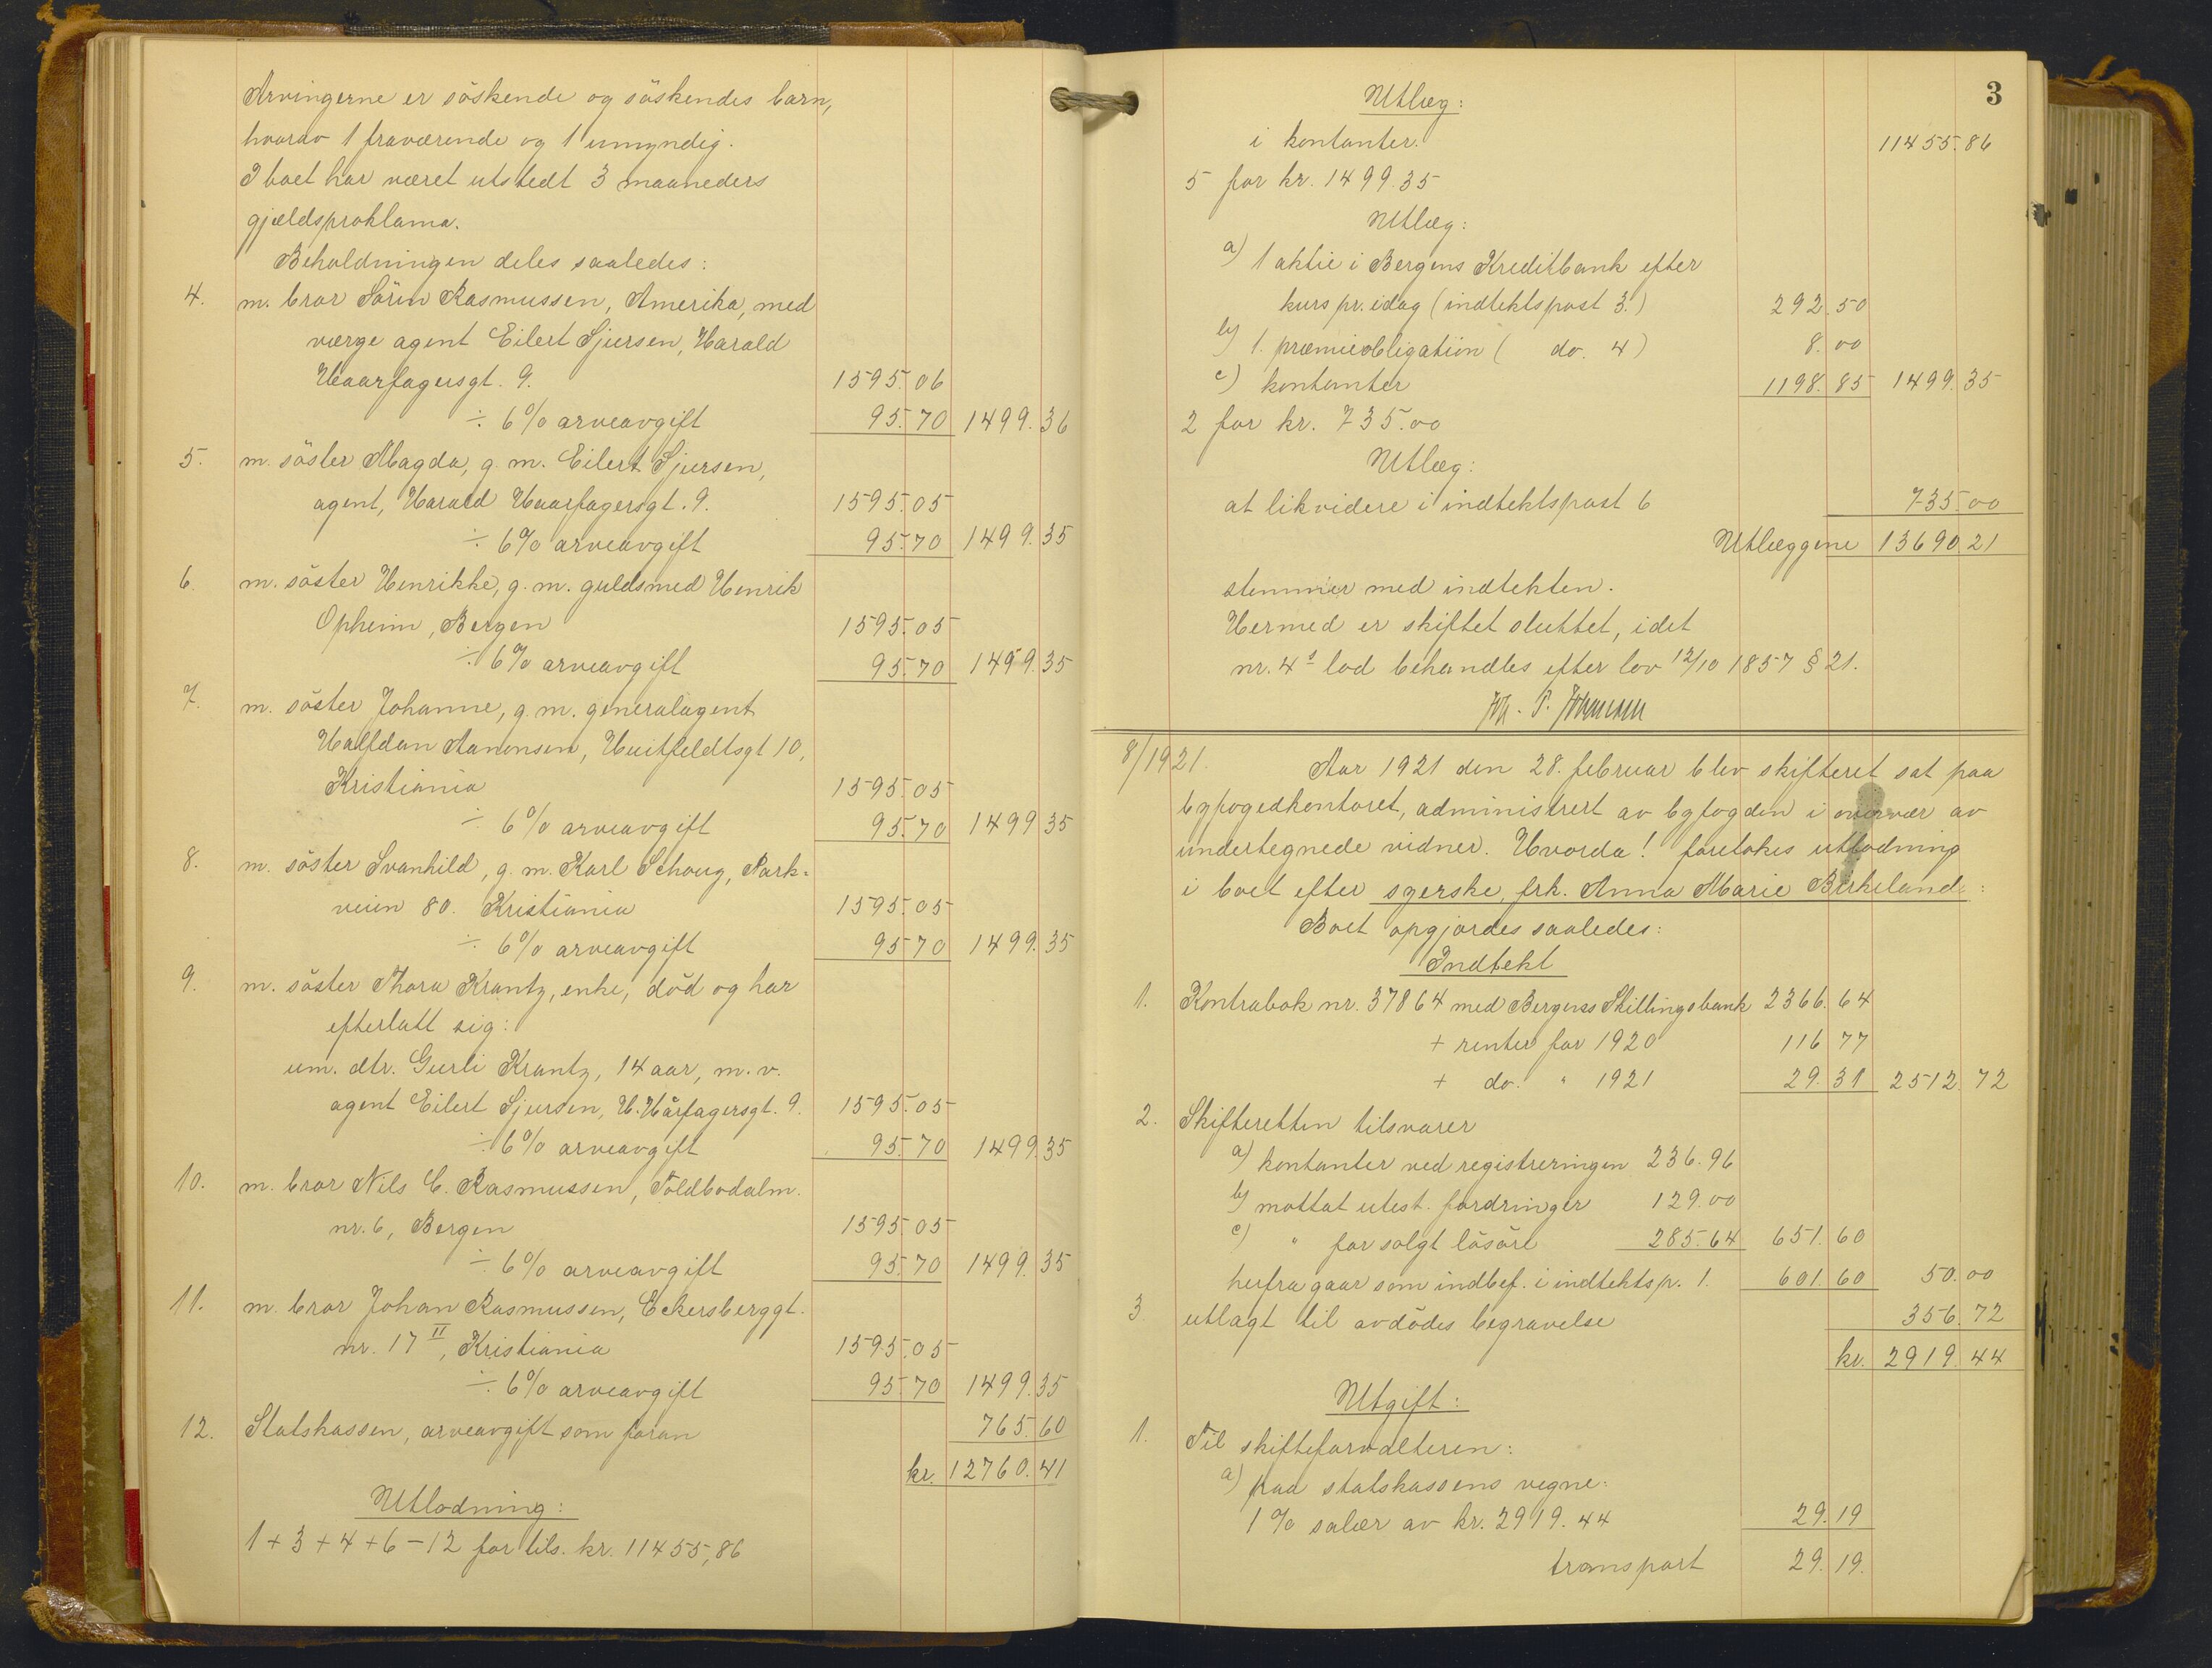 Arvingerne er söskende og söskendes barn,
hvorav 1 fraværende og 1 umyndig.
I boet har været utstedt 3 maaneders
gjældsproklama.
Beholdningen deles saaledes:
4. m. bror Sören Rasmussen, Amerika, med
værge agent Eilert Sjursen, Harald
Haarfagersgt. 9. 1595.06
÷ 6% arveavgift 95.70 1499.36
5. m. söster Magda, g. m. Eilert Sjursen,
agent, Harald Haarfagersgt. 9. 1595.05
÷ 6% arveavgift 95.70 1499.35
6. m. söster Henrikke, g. m. guldsmed Henrik
Opheim, Bergen 1595.05
÷ 6% arveavgift 95.70 1499.35
7. m. söster Johanne, g. m. generalagent
Halfdan Aanonsen, Huitfeldtsgt 10,
Kristiania 1595.05
÷ 6% arveavgift 95.70 1499 35
8. m. söster Svanhild, g. m. Karl Schoug, Park=
veien 80. Kristiania 1595.05
÷ 6% arveavgift 95 70 1499.35
9. m. söster Thora Krantz, enke, död og har
efterlatt sig:
um. dtr. Gurli Krantz, 14 aar, m. v.
agent Eilert Sjursen, H. Hårfagersgt. 9. 1595.05
÷ 6% arveavgift 95.70 1499.35
10. m. bror Nils C. Rasmussen, Toldbodalm.
nr. 6, Bergen 1595 05
÷ 6% arveavgift 95.70 1499.35
11. m. bror Johan Rasmussen, Eckersberggt.
nr. 17 II, Kristiania 1595.05
÷ 6% arveavgift 95.70 1499.35
12. Statskassen, arveavgift som foran 765.60
kr. 12760.41
Utlodning:
1 + 3 + 4 + 6 – 12 for tils. kr. 11455,86
3
Utlæg:
i kontanter. 11455.86
5 for kr. 1499.35
Utlæg:
a) 1 aktie i Bergens Kreditbank efter
kurs pr. idag (indtektspost 3.) 292.50
b) 1. præmieobligation ( do. 4) 8.00
c) kontanter 1198.85 1499.35
2 for kr. 735.00
Utlæg:
at likvidere i indtektspost 6 735.00
Utlæggene 13690.21
stemmer med indtekten.
Hermed er skiftet sluttet, idet
nr. 4s lod behandles efter lov 12/10 1857 § 21.
8/1921. Aar 1921 den 28. februar blev skifteret sat paa
byfogedkontoret, administrert av byfogden i overvær av
undertegnede vidner. Hvorda! foretokes utlodning
i boet efter syerske, frk. Anna Marie Birkeland:
Boet opgjordes saaledes:
Indtekt
1. Kontrabok nr. 37864 med Bergens Skillingsbank 2366.64
+ renter for 1920 116 77
+ do. " 1921 29.31 2512 72
2. Skifteretten tilsvarer
a) kontanter ved registreringen 236.96
b) mottat utest. fordringer 129.00
c) " for solgt lösöre 285.64 651.60
herfra gaar som indbef. i indtektsp. 1. 601.60 50.00
3 utlagt til avdödes begravelse 356.72
kr. 2919.44
Utgift:
1. Til skifteforvalteren:
a) paa statskassens vegne:
1% salær av kr. 2919.44 29.19
transport 29.19.